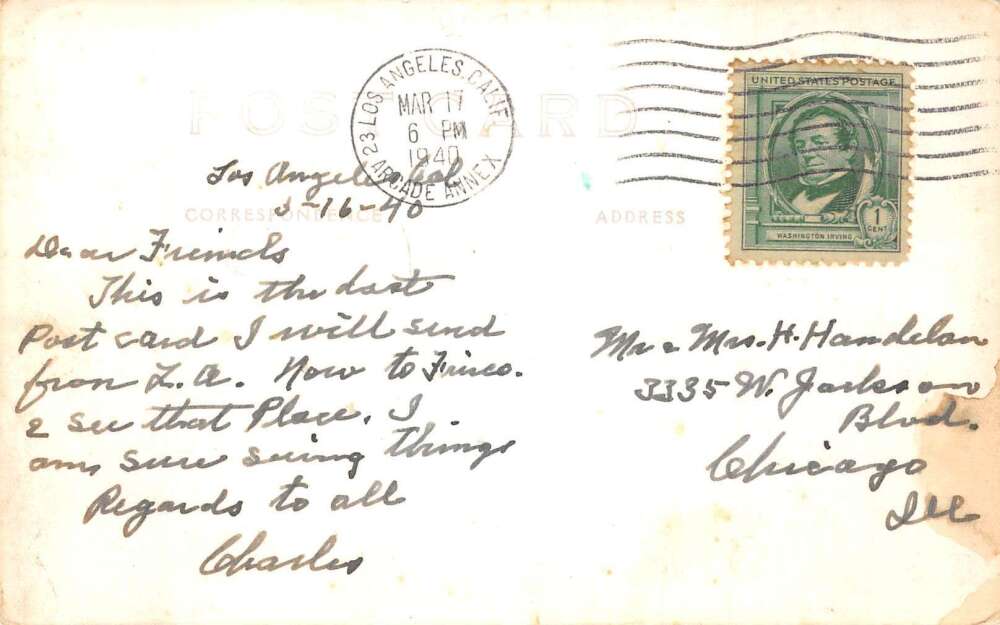 POST CARD
23 LOS ANGELES, CALIF.
MAR 17
6 PM
1940
ARCADE ANNEX
UNITED STATES POSTAGE
WASHINGTON IRVING
1
CENT
CORRESPONDENCE
ADDRESS
Los Angeles Cal
3-16-40
Dear Friends
This is the last
Post card I will send
from L.A. Now to Frisco.
& see that Place. I
am sure seeing things
Regards to all
Charles
Mr & Mrs. H. Handelan
3335 W. Jackson
Blvd.
Chicago
Ill